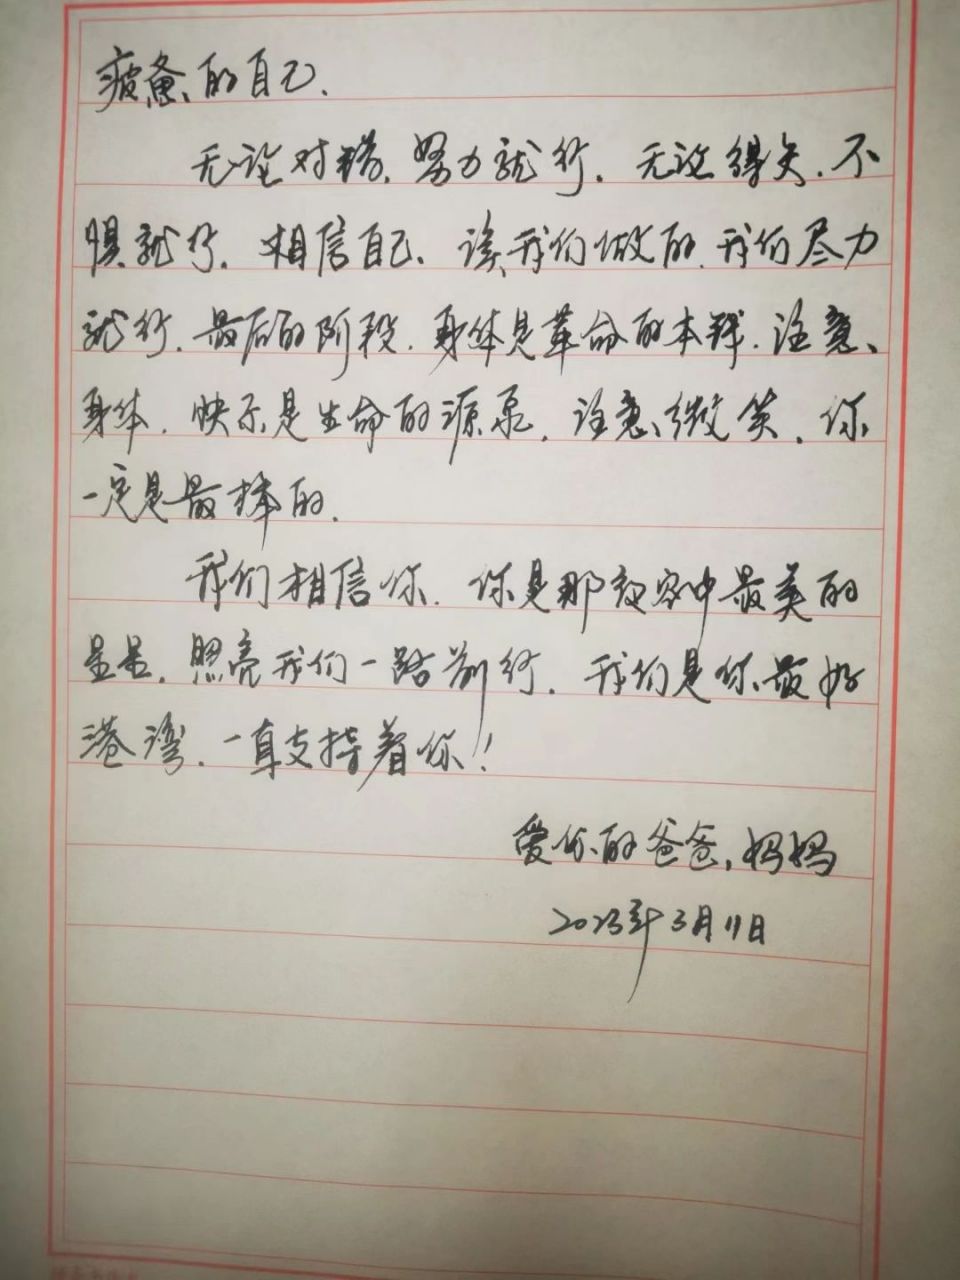 疲惫的自己.
无论对错.努力就行.无论得失.不
惧就行.相信自己.该我们做的.我们尽力
就行.最后的阶段.身体是革命的本钱.注意
身体.快乐是生命的源泉.注意微笑.你
一定是最棒的.
我们相信你.你是那夜空中最美的
星星.照亮我们一路前行.我们是你最好
港湾.一直支持着你!
爱你的爸爸,妈妈
2023年3月11日